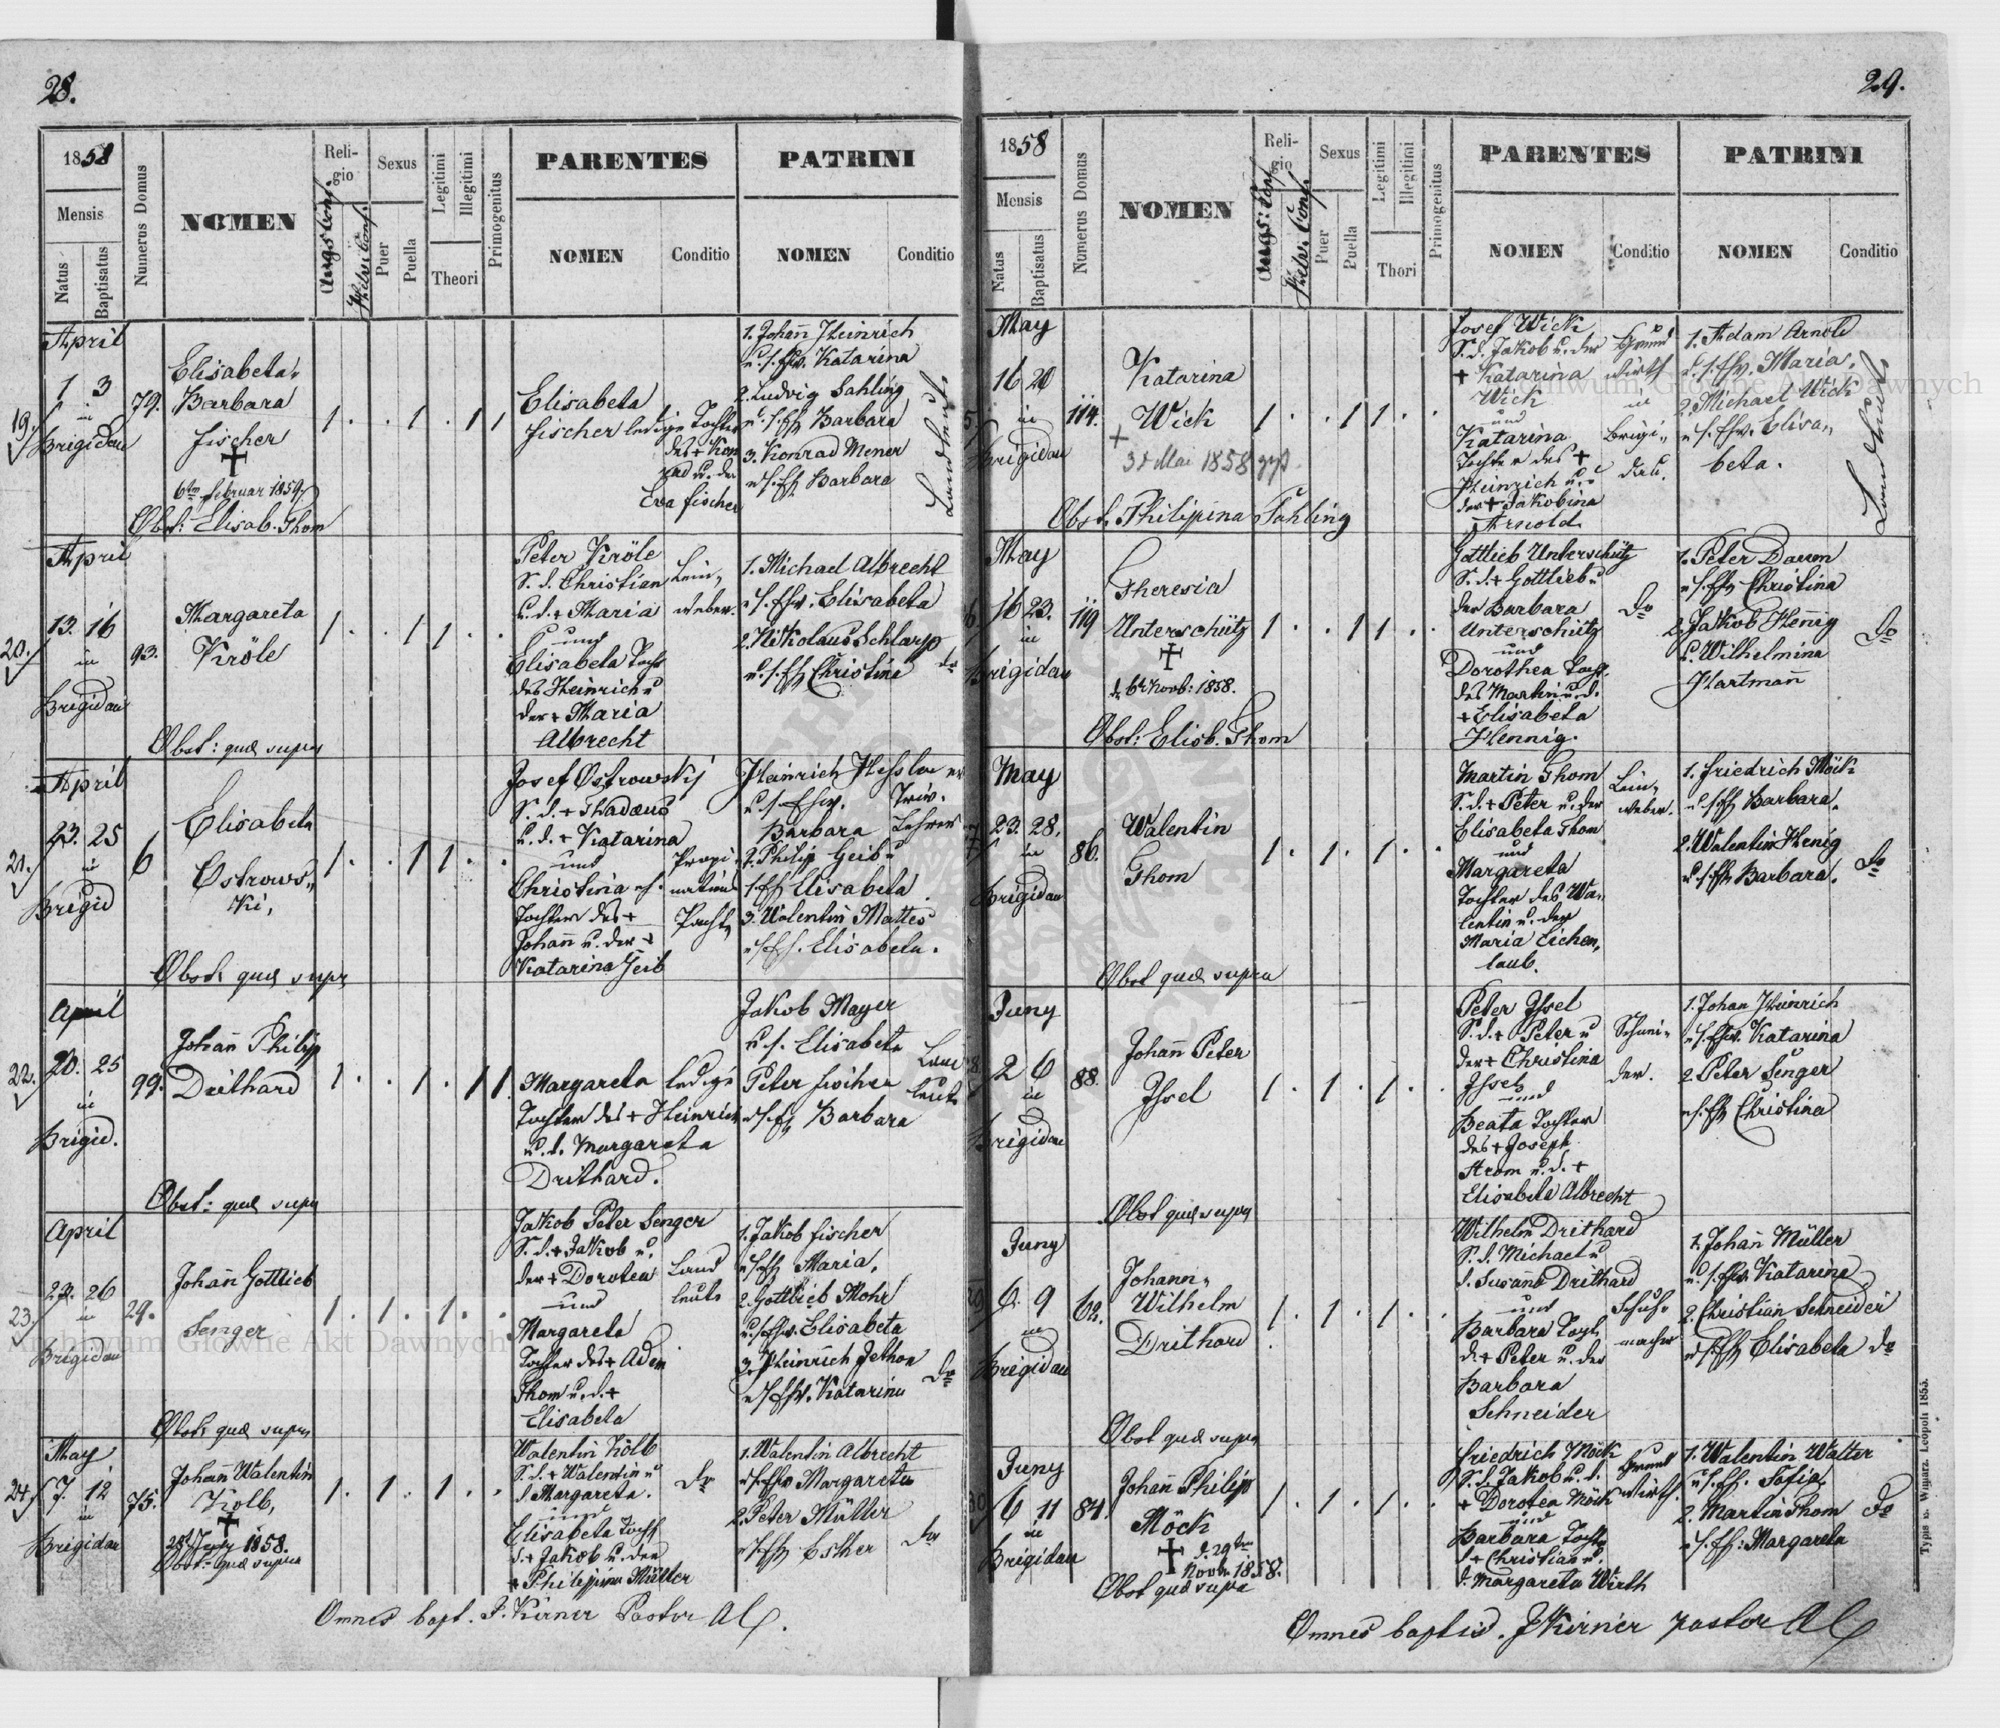 28.
1858
Mensis
Natus
Baptisatus
Numerus Domus
NOMEN
Religio
Augs. Conf.
Helv. Conf.
Sexus
Puer
Puella
Legitimi
Illegitimi
Theori
Primogenitus
PARENTES
NOMEN
Conditio
PATRINI
NOMEN
Conditio
19.
April
1 3
in
Brigidau
79.
Elisabeta
Barbara
Fischer
6ten Februar 1859
Obst: Elisab. Thom
1 . . 1 . 1 1
Elisabeta
Fischer ledige Tochter
des + Kon
rad u. der
Eva Fischer
1. Johañ Heinrich
u. s. Ehw. Katarina
2. Ludvig Sahling
u. s. Eh Barbara
3. Konrad Mener
u. s. Eh Barbara
Landleut.
20.
April
13. 16
in
Brigidau
93.
Margareta
Kröle
Obst: quæ supra
1 . . 1 1 . .
Peter Kröle
S. d. Christian
u. d. + Maria
und
Elisabeta Toch
des Heinrich u
der + Maria
Albrecht
Lein,
weber.
1. Michael Albrecht
u. s. Ehw. Elisabeta
2. Nikolaus Schlarp
u. s. Eh Christine
do
21.
April
23. 25
in
Brigid
6
Elisabeta
Ostrows,,
ki,
Obst: quæ supr
1 . . 1 1 . .
Josef Ostrowskij
S. d. + Thadæus
u. d. + Katarina
und
Christina
Tochter des +
Johañ u. der +
Katarina Geib
Propi
nations
Pacht,
Heinrich Hessler
u. s. Ehw.
Barbara
2. Philip Geib u
s. Eh Elisabeta
3. Walentin Mattes
u. s. Eh. Elisabeta.
Triv.
Lehrer
22.
April
20. 25
in
Brigid.
99.
Johañ Philip
Drithard
Obst: quæ supra
1 . . 1 . 1 1
Margareta ledige
Tochter des + Heinrich
u. d. Margareta
Drithard.
Jakob Mayer
u. s. Elisabeta
Peter Fischer
u. s. Eh Barbara
Land
leute
23.
April
23. 26
in
Brigidau
29.
Johañ Gottlieb
Senger
Obst: quæ supra
1 . 1 . 1 . .
Jakob Peter Senger
S. d. + Jakob u.
der + Dorotea
und
Margareta
Tochter des + Adam
Thom u. d. +
Elisabeta
Land
leute
1. Jakob Fischer
u. s. Eh Maria,
2. Gottlieb Mohr
u. s. Ehw. Elisabeta
3. Heinrich Jethon
u. s. Ehw. Katarina
do
24.
May
7. 12
in
Brigidau
75.
Johañ Walentin
Kolb,
1858.
Obst: quæ supra
1 . 1 . 1 . .
Walentin Kolb
S. d. + Walentin u
d. Margareta.
und
Elisabeta Toch
d. + Jakob u. der
+ Philippina Müller
do
1. Walentin Albrecht
u. s. Ehw Margareta
2. Peter Müller
u. s. Eh Esther
do
Omnes bapt. J. Kirner Pastor AC.
29.
1858
Mensis
Natus
Baptisatus
Numerus Domus
NOMEN
Religio
Augs: Conf
Helv. Conf.
Sexus
Puer
Puella
Legitimi
Illegitimi
Thori
Primogenitus
PARENTES
NOMEN
Conditio
PATRINI
NOMEN
Conditio
May
16 20
in
Brigidau
114.
Katarina
Wick
Mai 1858
Obst. Philipina Sahling
1 . . 1 1 . .
Josef Wick
S. d. Jakob u. der
+ Katarina
Wick
und
Katarina
Tochter des +
Heinrich u.
der + Jakobina
Arnold.
Grund
wirth
in
Brigi,,
dau.
1. Adam Arnold
u. s. Ehw. Maria,
2. Michael Wick
u. s. Ehw. Elisa,,
beta.
Landleute
May
16 23.
in
Brigidau
119
Theresia
Unterschütz
d. 6t Novb: 1858.
Obst: Elisb. Thom
1 . . 1 1 . .
Gottlieb Unterschütz
S. d. + Gottlieb u
der Barbara
Unterschütz
und
Dorothea Toch.
des Martin u. d.
+ Elisabeta
Hennig.
do
1. Peter Daum
u. s. Eh Christina
2. Jakob Heñig
u. Wilhelmina
Hartmañ
do
May
23. 28.
in
Brigidau
86.
Walentin
Thom
Obst quæ supra
1 . 1 . 1 . .
Martin Thom
S. d. + Peter u. der
Elisabeta Thom
und
Margareta
Tochter des Wa,
lentin u. der
Maria Eichen,
laub.
Lein,
weber.
1. Friedrich Möck
u. s. Eh Barbara.
2. Walentin Henig
u. s. Eh Barbara.
do
Juny
2 6
in
Brigidau
88.
Johañ Peter
Issel
Obst quæ supra
1 . 1 . 1 . .
Peter Issel
S. d. + Peter u
der + Christina
Issel
und
Beata Tochter
des + Joseph
Strom u. d. +
Elisabeta Albrecht
Schnei-
der.
1. Johan Heinrich
u. s. Ehw. Katarina
2. Peter Senger
u. s. Eh Christina
Juny
6. 9
in
Brigidau
62.
Johann,,
Wilhelm
Drithard
Obst quæ supra
1 . 1 . 1 . .
Wilhelm Drithard
S. d. Michael u
d. Susañe Drithard
und
Barbara Toch
d. + Peter u. der
Barbara
Schneider
Schuh-
macher
1. Johañ Müller
u. s. Ehw Katarina
2. Christian Schneider
u. s. Eh Elisabeta
do
30
Juny
6 11
in
Brigidau
84.
Johañ Philip
Möck
d. 29ten
Novb. 1858.
Obst quæ supra
1 . 1 . 1 . .
Friedrich Möck
S. d. Jakob u. d.
+ Dorotea Möck
und
Barbara Tocht
d + Christian u.
d. Margareta Wirth
Grund
wirth.
1. Walentin Walter
u. s. Eh. Sofia,
2. Martin Thom
u. s. Eh: Margareta
do
Omnes baptis. J Kirner pastor AC
Typis v. Winiarz. Leopoli 1855.
Archiwum Główne Akt Dawnych
Archiwum Główne Akt Dawnych